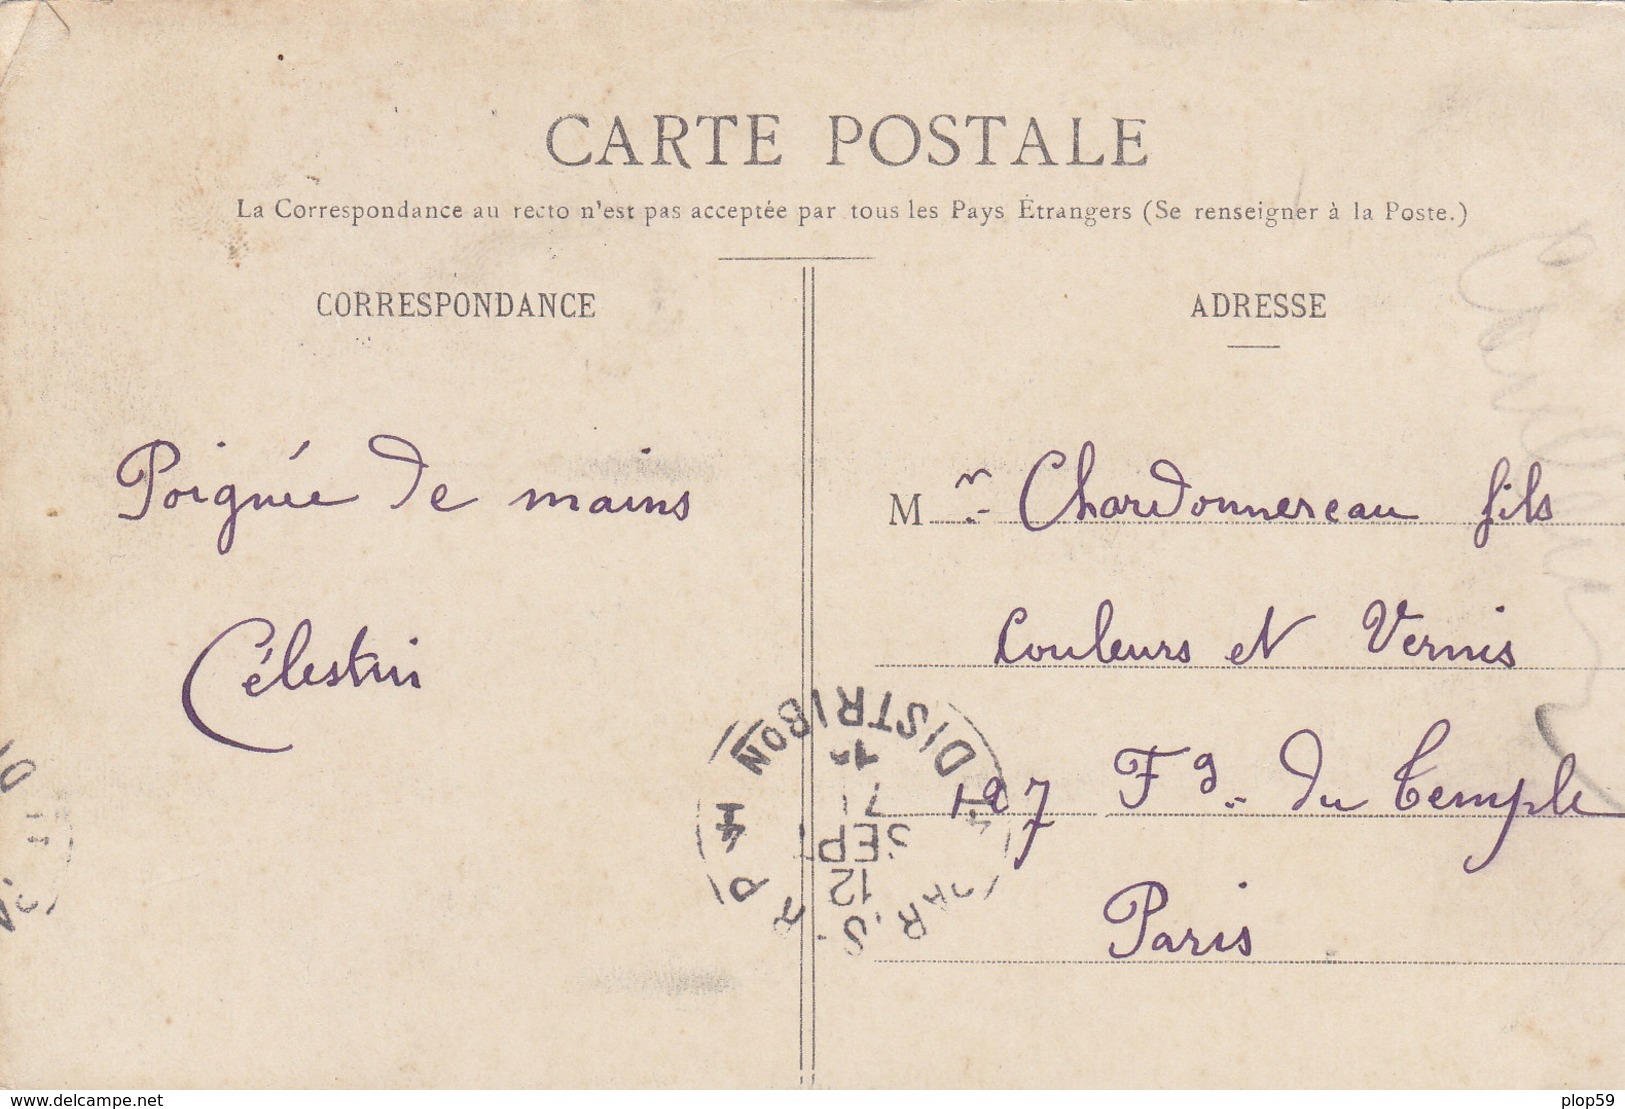 CARTE POSTALE
La Correspondance au recto n'est pas acceptée par tous les Pays Étrangers (Se renseigner à la Poste.)
CORRESPONDANCE
Poignée de mains
Célestin
ADRESSE
M r. Chardonnereau fils
Couleurs et Vernis
127 Fg. du Temple
Paris
DISTRIBON
1e
7
SEPT
12
www.delcampe.net
plop59